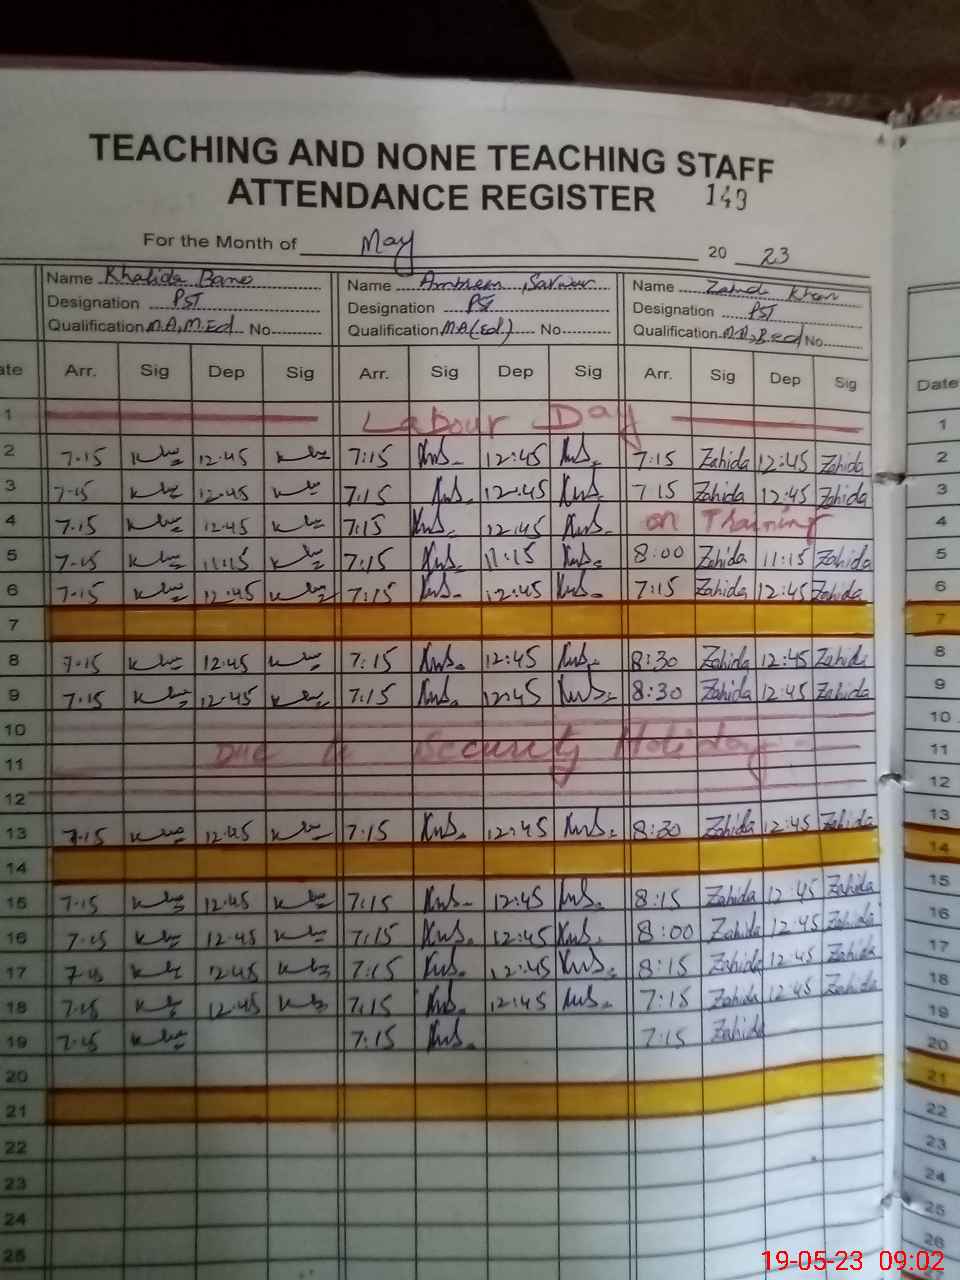 TEACHING AND NONE TEACHING STAFF
ATTENDANCE REGISTER 149
For the Month of May 20 23
Name Khalida Bano Name Ambreen Sarwar Name Zahid Khan
Designation PST Designation PST Designation PST
Qualification M.A, M.Ed No. Qualification M.A(Ed.) No. Qualification M.A, B.ed No.
ate Arr. Sig Dep Sig Arr. Sig Dep Sig Arr. Sig Dep Sig Date
1 Labour Day 1
2 7.15 12.45 7:15 12:45 7:15 Zahida 12:45 Zahida 2
3 7.15 12.45 7:15 12:45 7 15 Zahida 12:45 Zahida 3
4 7.15 12.45 7:15 12:45 on Thaining 4
5 7.15 11.15 7:15 11:15 8:00 Zahida 11:15 Zahida 5
6 7.15 12.45 7:15 12:45 7:15 Zahida 12:45 Zahida 6
7 7
8 7.15 12.45 7:15 12:45 8:30 Zahida 12:45 Zahida 8
9 7.15 12.45 7:15 12:45 8:30 Zahida 12:45 Zahida 9
10 10
11 Due to Security Holiday 11
12 12
13 7.15 12.45 7:15 12:45 8:30 Zahida 12:45 Zahida 13
14 14
15 7.15 12.45 7:15 12:45 8:15 Zahida 12 45 Zahida 15
16 7.15 12.45 7:15 12:45 8:00 Zahida 12:45 Zahida 16
17 7.15 12.45 7:15 12:45 8:15 Zahida 12:45 Zahida 17
18 7.15 12.45 7:15 12:45 7:15 Zahida 12:45 Zahida 18
19 7.15 7:15 7:15 Zahida 19
20 20
21 21
22 22
23 23
24 24
25 25
26
19-05-23 09:02